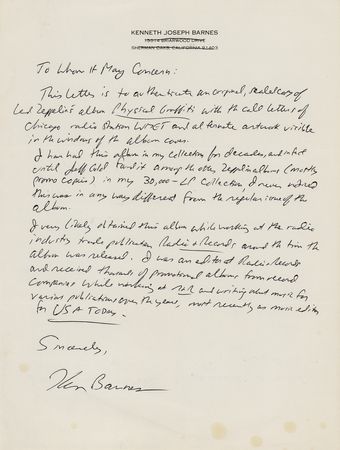 KENNETH JOSEPH BARNES
BRIARWOOD DRIVE
SHERMAN OAKS, CALIFORNIA 91403
To Whom It May Concern:
This letter is to authenticate an original, sealed copy of
Led Zeppelin's album Physical Graffiti with the call letters of
Chicago radio station and alternate artwork visible
in the windows of the album cover.
I have had this album in my collection for decades, and
until Jeff Gold found it among the other Zeppelin albums (mostly
promo copies) in my 30,000-LP collection, I never noticed
this was in any way different from the regular issue of the
album.
I very likely obtained this album while working at the radio
industry trade publication Radio & Records around the time the
album was released. I was an editor at Radio & Records
and received thousands of promotional albums from record
companies while working at R&R and writing about music for
various publications over the years, most recently as music editor
for USA Today.
Sincerely,
Ken Barnes